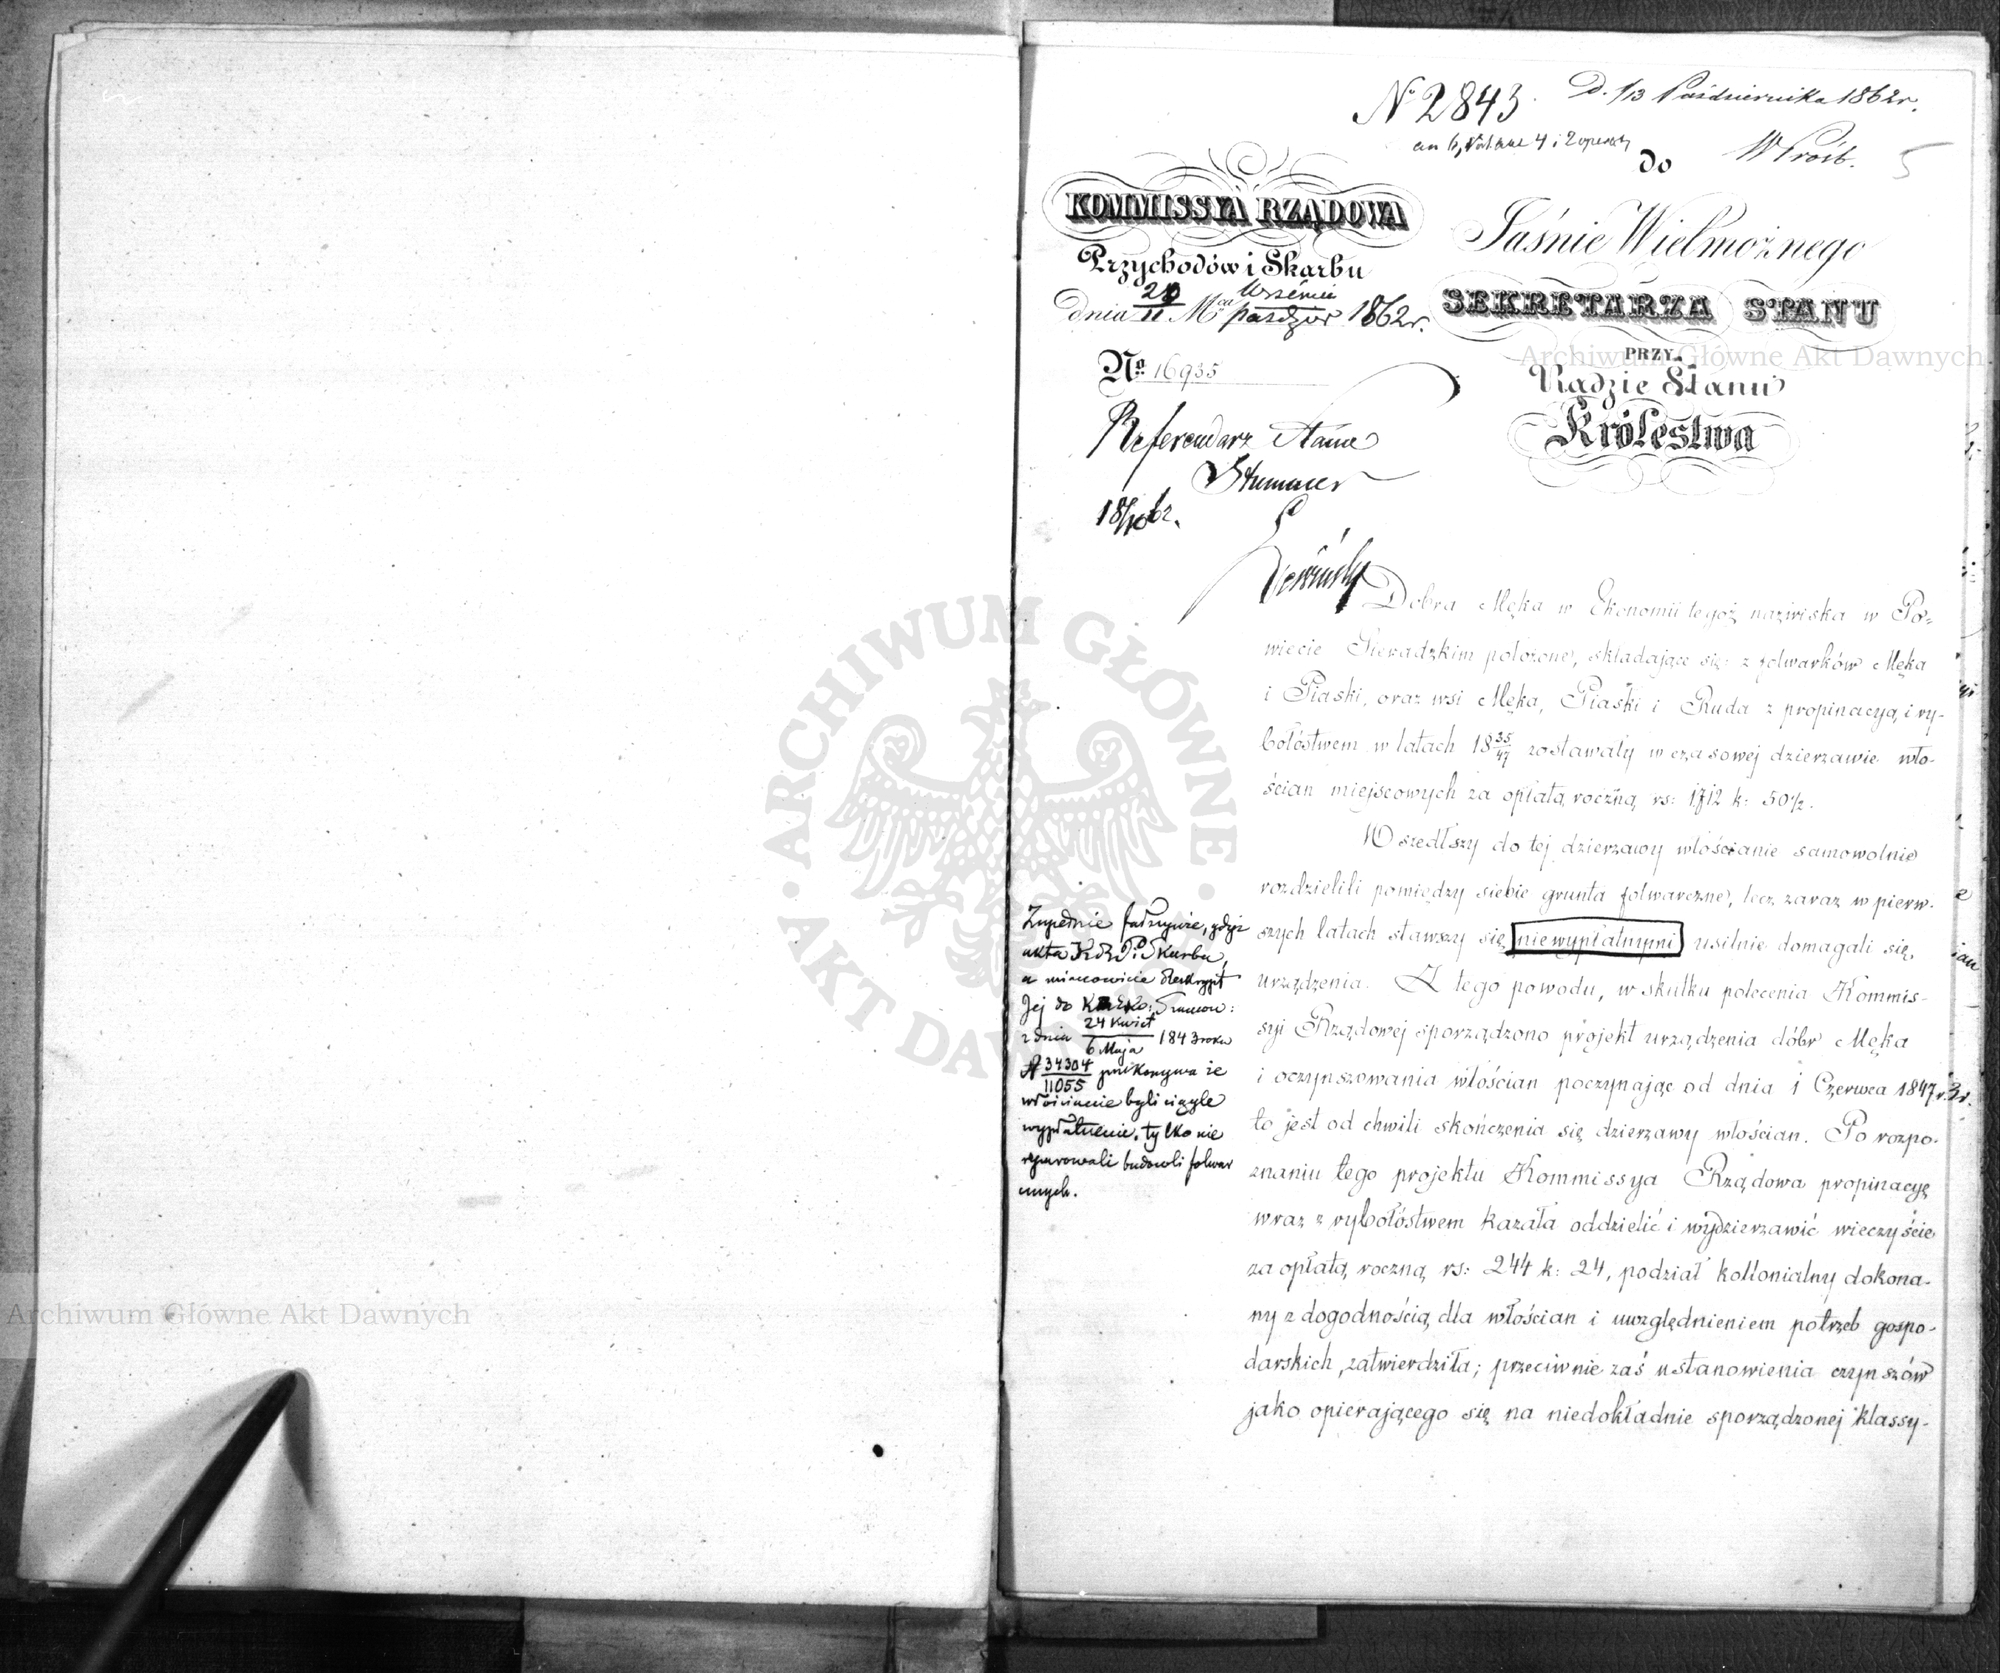 № 2843.
D. 1/13 Października 1862 r.
do
W Prośb.
5
KOMMISSYA RZĄDOWA
Przychodów i Skarbu
dnia 20/11 Mca Wrześnii/paźdz̄er 1862 r.
No. 16935
Referendarz Stanu
Stummer
18/10 62.
Jaśnie Wielmożnego
SEKRETARZA STANU
PRZY
Radzie Stanu
Królestwa
Dobra Męka w Ekonomii tegoż nazwiska w Po-
wiecie Sieradzkim położone, składające się: z folwarków Męka
i Piaski, oraz wsi Męka, Piaski i Ruda z propinacyą i ry-
bołóstwem w latach 18 35/47 zostawały w czasowej dzierzawie wło-
ścian miejscowych za opłatą roczną rs: 1712 k: 50½.
Wszedłszy do tej dzierzawy włościanie samowolnie
rozdzielili pomiędzy siebie grunta folwarczne, lecz zaraz w pierw-
szych latach stawszy się niewypłatnymi usilnie domagali się
urządzenia. Z tego powodu, w skutku polecenia Kommis-
syi Rządowej sporządzono projekt urządzenia dóbr Męka
i oczynszowania włościan poczynając od dnia 1 Czerwca 1847 r.
to jest od chwili skończenia się dzierzawy włościan. Po rozpo-
znaniu tego projektu Kommissya Rządowa propinacyę
wraz z rybołóstwem kazała oddzielić i wydzierzawić wieczyście
za opłatą roczną rs: 244 k: 24, podział kollonialny dokona-
ny z dogodnością dla włościan i uwzględnieniem potrzeb gospo-
darskich, zatwierdziła; przeciwnie zaś ustanowienia czynszów
jako opierającego się na niedokładnie sporządzonej klassy-
Zupełnie fałszywie, gdyż
akta K.R.P. i Skarbu,
a mianowicie Reskrypt
Jej do
z dnia 24 Kwiet/6 Maja 1843 roku
№ 34304/11055 przekonywa że
włościanie byli ciągle
wypłatnemi, tylko nie
reparowali budowli folwar
cznych.
ARCHIWUM GŁÓWNE · AKT DAWNYCH ·
Archiwum Główne Akt Dawnych
Archiwum Główne Akt Dawnych